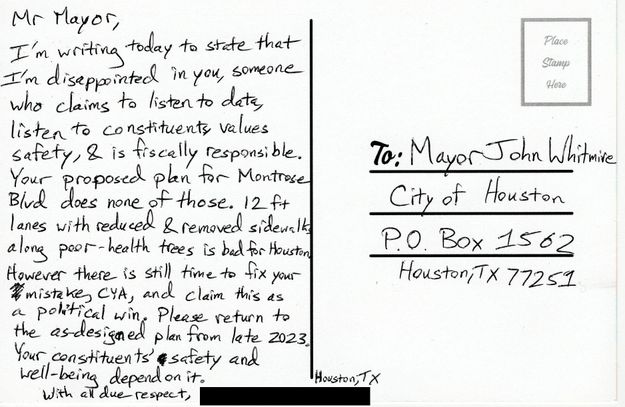 Mr Mayor,
I'm writing today to state that
I'm disappointed in you, someone
who claims to listen to data,
listen to constituents, values
safety, & is fiscally responsible.
Your proposed plan for Montrose
Blvd does none of those. 12 ft
lanes with reduced & removed sidewalks
along poor-health trees is bad for Houston.
However there is still time to fix your
mistake, CYA, and claim this as
a political win. Please return to
the as-designed plan from late 2023.
Your constituents' safety and
well-being depend on it.
With all due respect,
Houston, TX
Place
Stamp
Here
To: Mayor John Whitmire
City of Houston
P.O. Box 1562
Houston, TX 77251